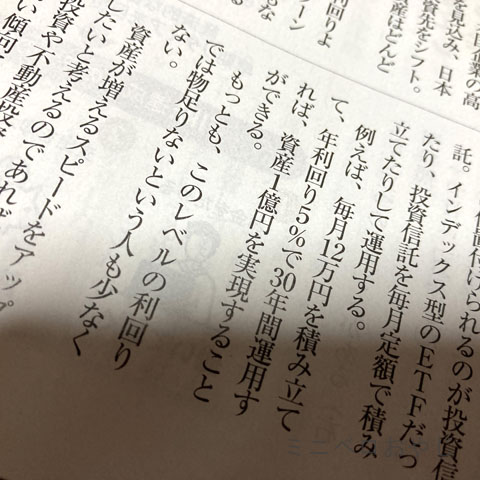 日産業の高
を見込み、日本
資先をシフト。
産はどんど
利回りよ
ーン
な
価付けられるのが投資信
託。インデックス型のETFだっ
たり、投資信託を毎月定額で積み
立てたりして運用する。
例えば、毎月12万円を積み立て
て、年利回り5%で30年間運用す
れば、資産1億円を実現すること
ができる。
もっとも、このレベルの利回り
では物足りないという人も少なく
ない。
資産が増えるスピードをアップ
したいと考えるのであれば
投資や不動産投
い傾向